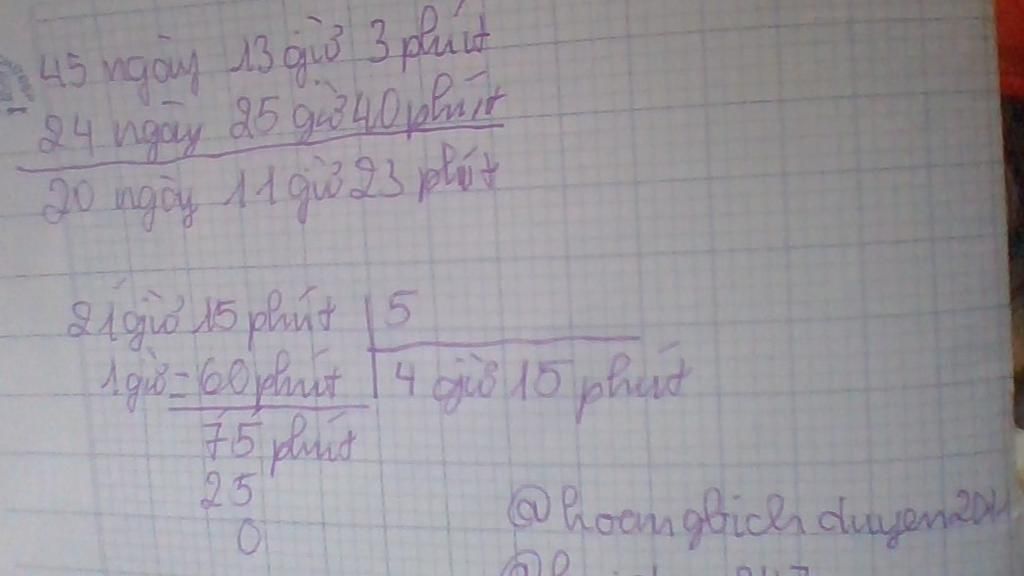 45 ngày 13 giờ 3 phút
-
24 ngày 25 giờ 40 phút
20 ngày 11 giờ 23 phút
21 giờ 15 phút 5
1 giờ = 60 phút 4 giờ 15 phút
75 phút
25
0